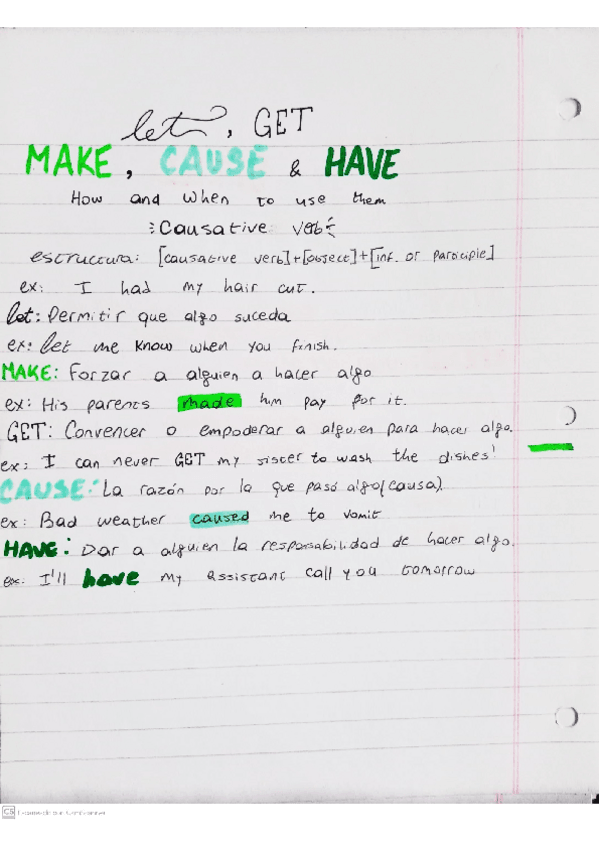 let, GET
MAKE, CAUSE & HAVE
How and when to use them
Causative verb
estructura: [causative verb]+[object]+[inf. or participle]
ex: I had my hair cut.
let: Permitir que algo suceda
ex: let me know when you finish.
MAKE: Forzar a alguien a hacer algo
ex: His parents made him pay for it.
GET: Convencer o empoderar a alguien para hacer algo.
ex: I can never GET my sister to wash the dishes!
CAUSE: La razón por la que pasó algo (causa).
ex: Bad weather caused me to vomit
HAVE: Dar a alguien la responsabilidad de hacer algo.
ex: I'll have my assistant call you tomorrow
CS